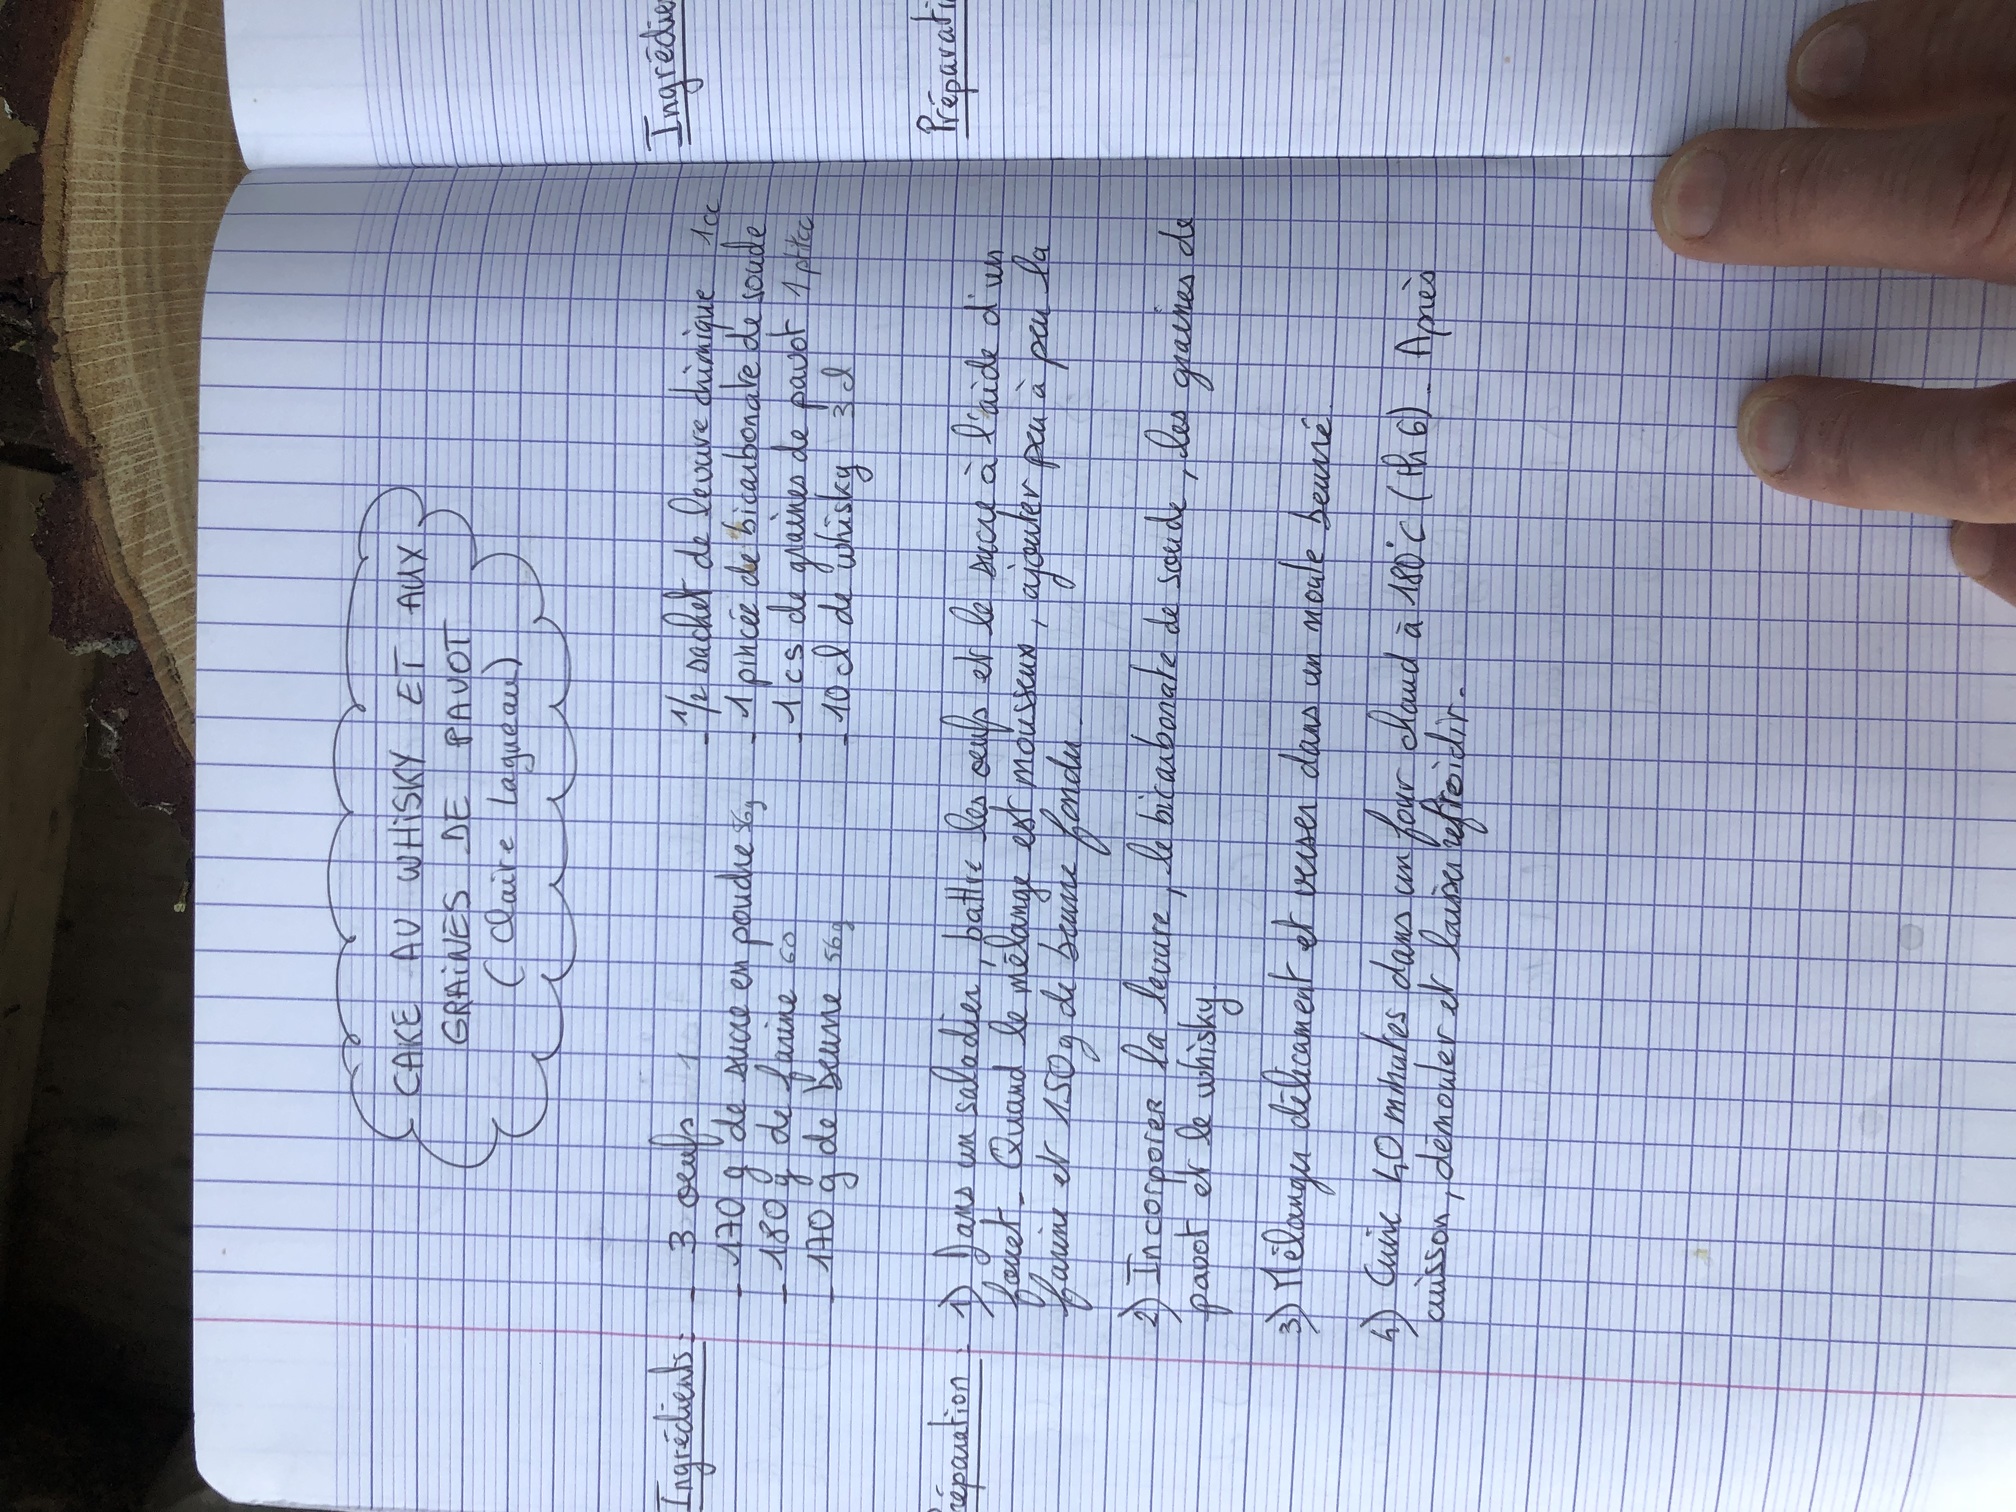 CAKE AU WHISKY ET AUX
GRAINES DE PAVOT
(Claire Lagueau)
Ingrédients :
- 3 oeufs 1
- 170 g de sucre en poudre 56g
- 180 g de farine 60
- 170 g de beurre 56g
- 1/2 sachet de levure chimique 1cc
- 1 pincée de bicarbonate de soude
- 1 cs de graines de pavot 1 ptitcc
- 10 cl de whisky 3 cl
réparation :
1) Dans un saladier, battre les oeufs et le sucre à l'aide d'un
fouet - Quand le mélange est mousseux, ajouter peu à peu la
farine et 150g de beurre fondu.
2) Incorporer la levure, le bicarbonate de soude, les graines de
pavot et le whisky.
3) Mélanger délicament et verser dans un moule beurré.
4) Cuire 40 minutes dans un four chaud à 180°C (th 6). Après
cuisson, démouler et laisser refroidir.
Ingrédie
Préparati